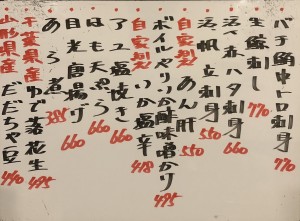 バチ鮪中トロ刺身 770
生鯨刺し 770
活赤ハタ刺身 660
活帆立刺身 550
自家製 あん肝 550
ボイルヤリイカ酢味噌かけ 495
自家製 いか塩辛 418
アユ塩焼き 660
はも天ぷら 660
目光唐揚げ 660
あら煮 385
千葉県産 ゆで落花生 495
山形県産 だだちゃ豆 440